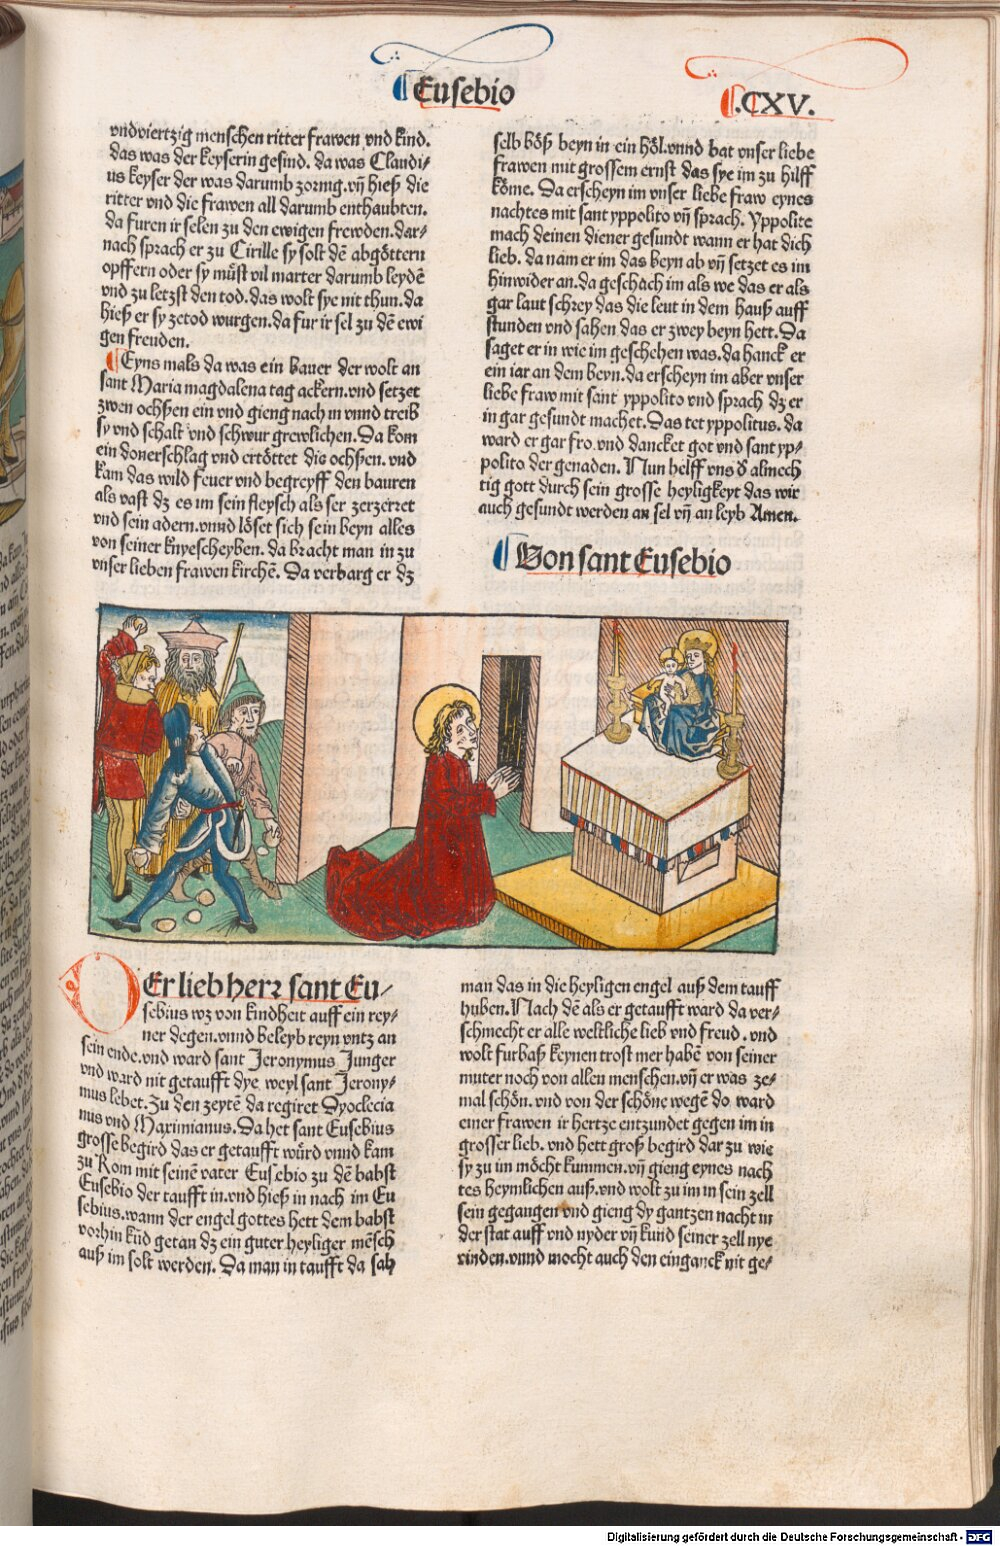 Eusebio
.CXV.
vnd viertzig menschen ritter frawen vnd kind.
das was der keyserin gesind. da was Claudi⸗
us keyser der was darumb zornig. vñ hieß die
ritter vnd die frawen all darumb enthaubten.
da furen ir selen zu den ewigen frewden. dar⸗
nach sprach er zu Cirille sy solt dē abgöttern
opffern oder sy můst vil marter darumb leydē
vnd zu letzst den tod. das wolt sye nit thun. da
hieß er sy zetod wurgen. da fur ir sel zu dē ewi
gen freuden.
Eyns mals da was ein bauer der wolt an
sant Maria magdalena tag ackern. vnd setzet
zwen ochßen ein vnd gieng nach in vnnd treib
sy vnd schalt vnd schwur grewlichen. Da kom
ein donerschlag vnd ertöttet die ochßen. vnd
kam das wild feuer vnd begreyff den bauren
als vast dz es im sein fleysch als ser zerzerret
vnd sein adern. vnnd löset sich sein beyn alles
von seiner knyescheyben. da bracht man in zu
vnser lieben frawen kirchē. Da verbarg er dz
selb böß beyn in ein höl. vnnd bat vnser liebe
frawen mit grossem ernst das sye im zu hilff
köme. Da erscheyn im vnser liebe fraw eynes
nachtes mit sant yppolito vñ sprach. Yppolite
mach deinen diener gesundt wann er hat dich
lieb. da nam er im das beyn ab vñ setzet es im
hinwider an. da geschach im als we das er als
gar laut schrey das die leut in dem hauß auff
stunden vnd sahen das er zwey beyn hett. Da
saget er in wie im geschehen was. da hanck er
ein iar an dem beyn. da erscheyn im aber vnser
liebe fraw mit sant yppolito vnd sprach dz er
in gar gesundt machet. Das tet yppolitus. da
ward er gar fro. vnd dancket got vnd sant yp⸗
polito der genaden. Nun helff vns d᷑ almech
tig gott durch sein grosse heyligkeyt das wir
auch gesundt werden an sel vñ an leyb Amen.
Von sant Eusebio
DEr lieb herꝛ sant Eu⸗
sebius wz von kindheit auff ein rey⸗
ner degen. vnnd beleyb reyn vntz an
sein ende. vnd ward sant Jeronymus Junger
vnd ward nit getaufft dye weyl sant Jerony⸗
mus lebet. Zu den zeytē da regiret Dyoclecia
nus vnd Maximianus. Da het sant Eusebius
grosse begird das er getaufft würd vnnd kam
zu Rom mit seinē vater Eusebio zu dē babst
Eusebio der taufft in. vnd hieß in nach im Eu
sebius. wann der engel gottes hett dem babst
vorhin kūd getan dz ein guter heyliger mēsch
auß im solt werden. Da man in taufft da sah
man das in die heyligen engel auß dem tauff
huben. Nach dē als er getaufft ward da ver⸗
schmecht er alle weltliche lieb vnd freud. vnd
wolt furbaß keynen trost mer habē von seiner
muter noch von allen menschen. vñ er was ze⸗
mal schön. vnd von der schöne wegē do ward
einer frawen ir hertze entzundet gegen im in
grosser lieb. vnd hett groß begird dar zu wie
sy zu im möcht kummen. vñ gieng eynes nach
tes heymlichen auß. vnd wolt zu im in sein zell
sein gegangen vnd gieng dy gantzen nacht in
der stat auff vnd nyder vñ kund seiner zell nye
vinden. vnnd mocht auch den einganck nit ge⸗
Digitalisierung gefördert durch die Deutsche Forschungsgemeinschaft - DFG